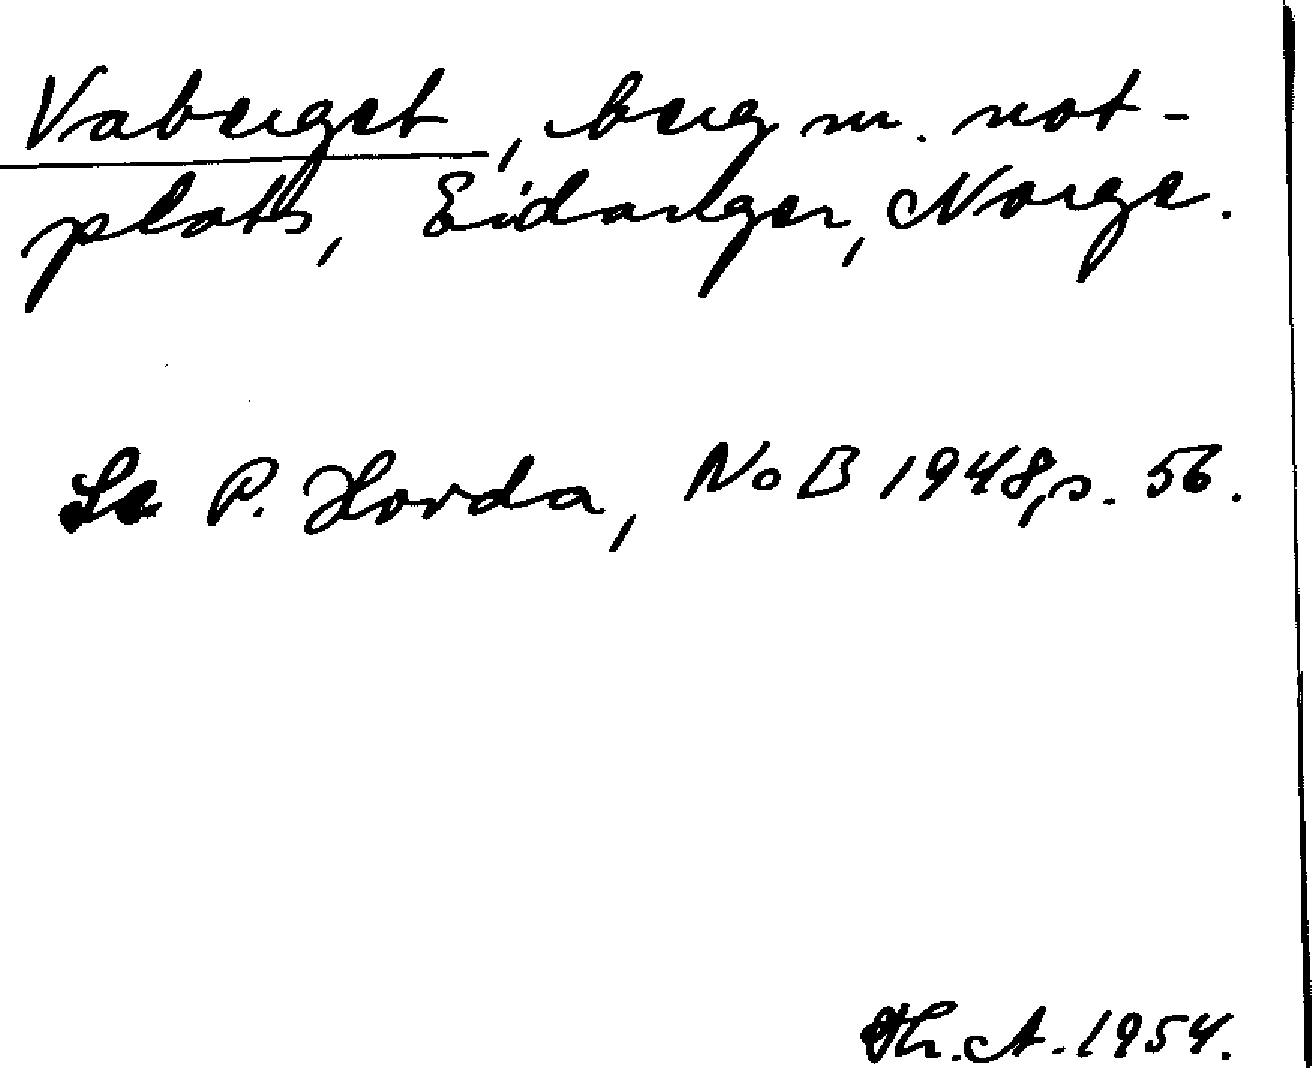 Vaberget, berg m. not-
plats, Eidanger, Norge.
Se P. Hovda, NoB 1948, s. 56.
Th. A. 1954.